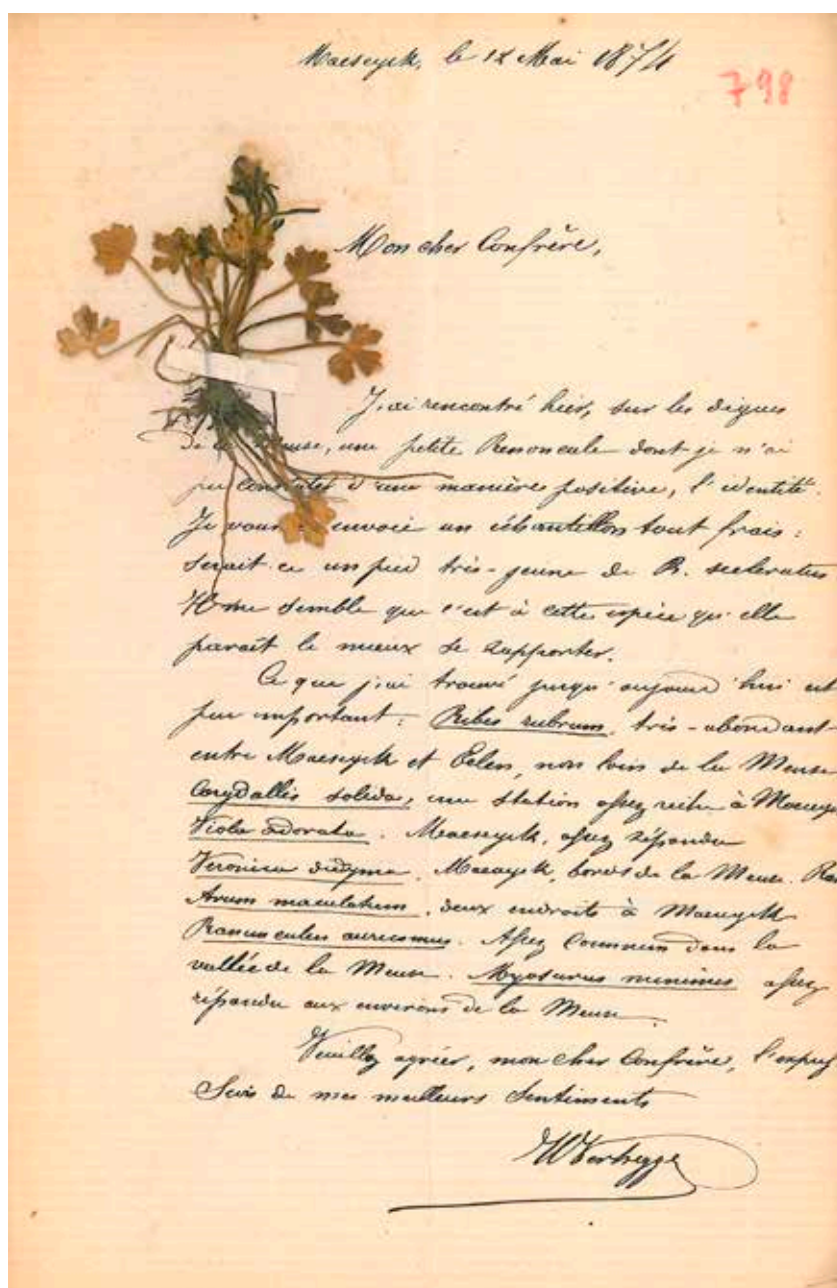 Maeseyck, le 12 Mai 1874
798
Mon cher Confrère,
J'ai rencontré hier, sur les digues
de la Meuse, une petite Renoncule dont je n'ai
pu constater d'une manière positive, l'identité.
Je vous envoie un échantillon tout frais :
serait-ce un pied très-jeune de R. sceleratus
Il me semble que c'est à cette espèce qu'elle
paraît le mieux se rapporter.
Ce que j'ai trouvé jusqu'aujourd'hui est
peu important : Ribes rubrum, très-abondant
entre Maeseyck et Eelen, non loin de la Meuse
Corydallis solida, une station assez riche à Maesey
Viola odorata. Maeseyck, assez répandu
Veronica didyma. Maeseyck, bords de la Meuse. Ra
Arum maculatum, deux endroits à Maeseyck
Ranunculus auricomus. Assez commun dans la
vallée de la Meuse. Myosurus minimus assez
répandu aux environs de la Meuse.
Veuillez agréer, mon cher Confrère, l'expres
sion de mes meilleurs sentiments